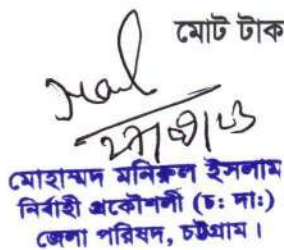 মোট টাক
মোহাম্মদ মনিরুল ইসলাম
নির্বাহী প্রকৌশলী (চ: দা:)
জেলা পরিষদ, চট্টগ্রাম।